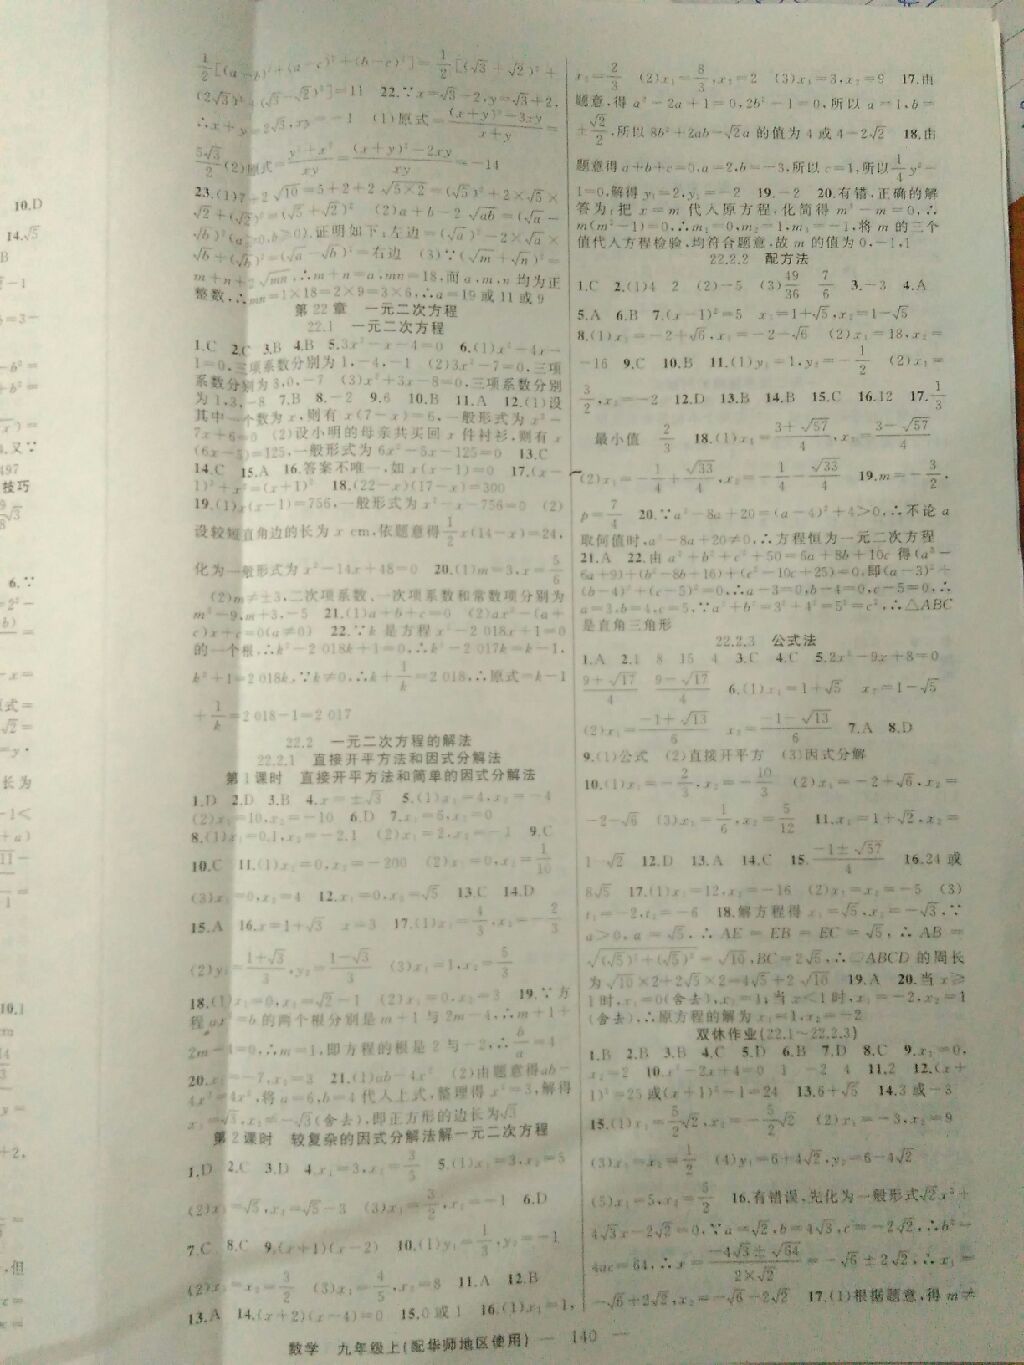 10.D
14.√5
B
6.∵
10.1
½[(a-b)²+(a-c)²+(b-c)²]=½[(√3+√2)²+
(2√3)²+(√3-√2)²]=11 22.∵x=√3-2,y=√3+2,
∴x+y=2√3,xy=-1 (1)原式=((x+y)²-3xy)/(x+y)=
5√3/2 (2)原式=(y²+x²)/xy=((x+y)²-2xy)/xy=-14
23.(1)7+2√10=5+2+2√5×2=(√5)²+2×√5×
√2+(√2)²=(√5+√2)² (2)a+b-2√ab=(√a-
√b)²(a≥0,b≥0).证明如下:左边=(√a)²-2×√a×
√b+(√b)²=(√a-√b)²=右边 (3)∵(√m+√n)²=
m+n+2√mn,∴m+n=a,mn=18,而a,m,n均为正
整数,∴mn=1×18=2×9=3×6,∴a=19或11或9
第22章 一元二次方程
22.1 一元二次方程
1.C 2.C 3.B 4.B 5.3x²-x-4=0 6.(1)x²-4x-
1=0,三项系数分别为1,-4,-1 (2)3x²-7=0,三项
系数分别为3,0,-7 (3)x²+3x-8=0,三项系数分别
为1,3,-8 7.B 8.-2 9.6 10.B 11.A 12.(1)设
其中一个数为x,则有x(7-x)=6,一般形式为x²-
7x+6=0 (2)设小明的母亲共买回x件衬衫,则有x
(6x-5)=125,一般形式为6x²-5x-125=0 13.C
14.C 15.A 16.答案不唯一,如x(x-1)=0 17.(x-
1)²+x²=(x+1)² 18.(22-x)(17-x)=300
19.(1)x(x-1)=756,一般形式为x²-x-756=0 (2)
设较短直角边的长为x cm,依题意得½x(14-x)=24,
化为一般形式为x²-14x+48=0 20.(1)m=3,x=5/6
(2)m≠±3,二次项系数、一次项系数和常数项分别为
m²-9,m+3,-5 21.(1)a+b+c=0 (2)ax²-(a+
c)x+c=0(a≠0) 22.∵k是方程x²-2 018x+1=0
的一个根,∴k²-2 018k+1=0,∴k²-2 017k=k-1,
k²+1=2 018k,∵k≠0,∴k+1/k=2 018,∴原式=k-1
+1/k=2 018-1=2 017
22.2 一元二次方程的解法
22.2.1 直接开平方法和因式分解法
第1课时 直接开平方法和简单的因式分解法
1.D 2.D 3.B 4.x=±√3 5.(1)x₁=4,x₂=-4
(2)x₁=10,x₂=-10 6.D 7.x₁=6,x₂=0
8.(1)x₁=0.1,x₂=-2.1 (2)x₁=2,x₂=-1 9.C
10.C 11.(1)x₁=0,x₂=-200 (2)x₁=0,x₂=1/10
(3)x₁=0,x₂=4 12.x₁=0,x₂=√5 13.C 14.D
15.A 16.x=1+√3 x=3 17.(1)x₁=4/3,x₂=-2/3
(2)y₁=(1+√3)/3,y₂=(1-√3)/3 (3)x₁=1,x₂=5/3
18.(1)x₁=0,x₂=√2-1 (2)x₁=0,x₂=3 19.∵方
程ax²=b的两个根分别是m+1与2m-4,∴m+1+
2m-4=0,∴m=1,即方程的根是2与-2,∴b/a=4
20.x₁=-7,x₂=3 21.(1)ab-4x² (2)由题意得ab-
4x²=4x²,将a=6,b=4代入上式,整理得x²=3,解得
x₁=√3,x₂=-√3(舍去),即正方形的边长为√3
第2课时 较复杂的因式分解法解一元二次方程
1.D 2.C 3.D 4.x₁=3,x₂=3/5 5.(1)x₁=3,x₂=5
(2)x₁=√5,x₂=√5-3 (3)x₁=3/2,x₂=-1 6.D
7.C 8.C 9.(x+1)(x-2) 10.(1)y₁=1/3,y₂=-1
(2)x₁=x₂=3/2 (3)x₁=4/5,x₂=8 11.A 12.B
13.A 14.(x+2)(x-4)=0 15.0或1 16.(1)x₁=1,
x₂=2/3 (2)x₁=8/3,x₂=2 (3)x₁=3,x₂=9 17.由
题意,得a²-2a+1=0,2b²-1=0,所以a=1,b=
±√2/2,所以8b²+2ab-√2a的值为4或4-2√2 18.由
题意得a+b+c=0,a=2,b=-3,所以c=1,所以¼y²-
1=0,解得y₁=2,y₂=-2 19.-2 20.有错,正确的解
答为:把x=m代入原方程,化简得m³-m=0,∴
m(m²-1)=0,∴m₁=0,m₂=1,m₃=-1,将m的三个
值代入方程检验,均符合题意,故m的值为0,-1,1
22.2.2 配方法
1.C 2.(1)4 2 (2)-5 (3)49/36 7/6 3.-3 4.A
5.A 6.B 7.(x-1)²=5 x₁=1+√5,x₂=1-√5
8.(1)x₁=-2+√6,x₂=-2-√6 (2)x₁=18,x₂=
-16 9.C 10.B 11.(1)y₁=1,y₂=-½ (2)x₁=
3/2,x₂=-2 12.D 13.B 14.B 15.C 16.12 17.1/3
最小值 2/3 18.(1)x₁=(3+√57)/4,x₂=(3-√57)/4
(2)x₁=-1/4+√33/4,x₂=-1/4-√33/4 19.m=-3/2,
p=7/4 20.∵a²-8a+20=(a-4)²+4>0,∴不论a
取何值时,a²-8a+20≠0,∴方程恒为一元二次方程
21.A 22.由a²+b²+c²+50=6a+8b+10c得(a²-
6a+9)+(b²-8b+16)+(c²-10c+25)=0,即(a-3)²+
(b-4)²+(c-5)²=0,∴a-3=0,b-4=0,c-5=0,∴
a=3,b=4,c=5,∵a²+b²=3²+4²=5²=c²,∴△ABC
是直角三角形
22.2.3 公式法
1.A 2.1 8 15 4 3.C 4.C 5.2x²-9x+8=0
(9+√17)/4 (9-√17)/4 6.(1)x₁=1+√5 x₂=1-√5
(2)x₁=(-1+√13)/6 x₂=(-1-√13)/6 7.A 8.D
9.(1)公式 (2)直接开平方 (3)因式分解
10.(1)x₁=-2/3,x₂=-10/3 (2)x₁=-2+√6,x₂=
-2-√6 (3)x₁=1/6,x₂=5/12 11.x₁=1+√2,x₂=
1-√2 12.D 13.A 14.C 15.(-1±√57)/4 16.24或
8√5 17.(1)x₁=12,x₂=-16 (2)x₁=x₂=-5 (3)
t₁=-2,t₂=-6 18.解方程得x₁=√5,x₂=-√3,∵
a>0,a=√5,∴AE=EB=EC=√5,∴AB=
√((√5)²+(√5)²)=√10,BC=2√5,∴▱ABCD的周长
为√10×2+2√5×2=4√5+2√10 19.A 20.当x≥
1时,x₁=0(舍去),x₂=1;当x<1时,x₁=-2,x₂=1
(舍去),∴原方程的解为x₁=1,x₂=-2
双休作业(22.1~22.2.3)
1.B 2.B 3.B 4.C 5.D 6.B 7.D 8.C 9.x₁=0,
x₂=2 10.x²-2x+4=0 1 -2 4 11.2 12.(x+
1)²=25或(x+1)²-1=24 13.6+√5 14.3或-3
15.(1)x₁=5/2√2,x₂=-5/2√2 (2)x₁=-3,x₂=9
(3)x₁=x₂=½ (4)y₁=6+4√2,y₂=6-4√2
(5)x₁=5,x₂=5/2 16.有错误,先化为一般形式√2x²+
4√3x-2√2=0,∵a=√2,b=4√3,c=-2√2,∴b²-
4ac=64,∴x=(-4√3±√64)/(2×√2)=-√6±2√2,∴x₁=
-√6+2√2,x₂=-√6-2√2 17.(1)根据题意,得m≠
数学 九年级上(配华师地区使用) — 140 —